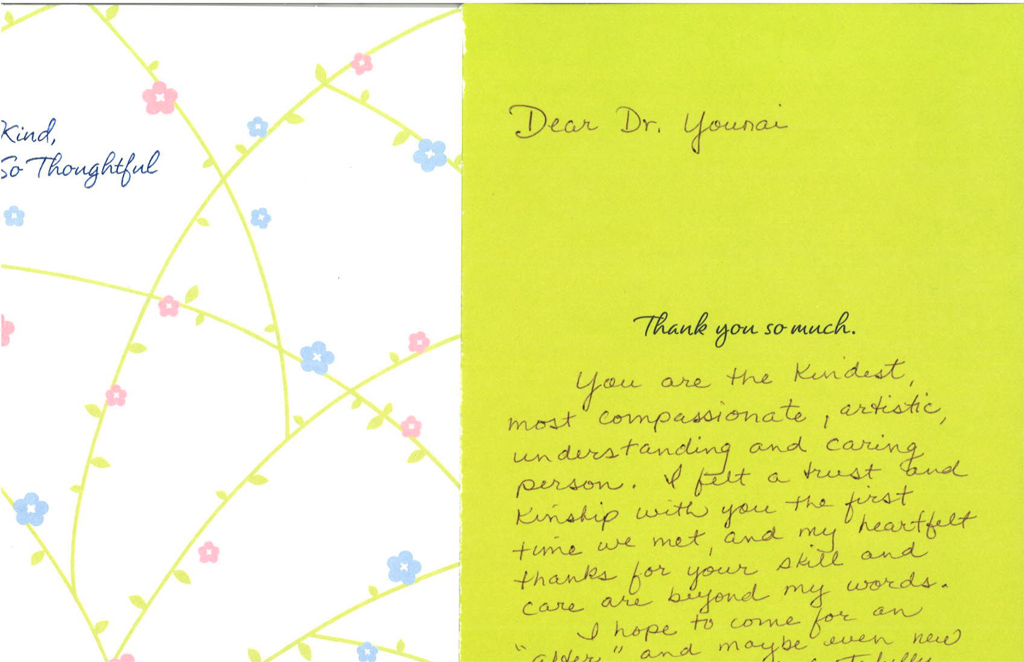 Kind,
So Thoughtful
Dear Dr. Younai
Thank you so much.
You are the kindest,
most compassionate, artistic,
understanding and caring
person. I felt a trust and
kinship with you the first
time we met, and my heartfelt
thanks for your skill and
care are beyond my words.
I hope to come for an
"after" and maybe even new